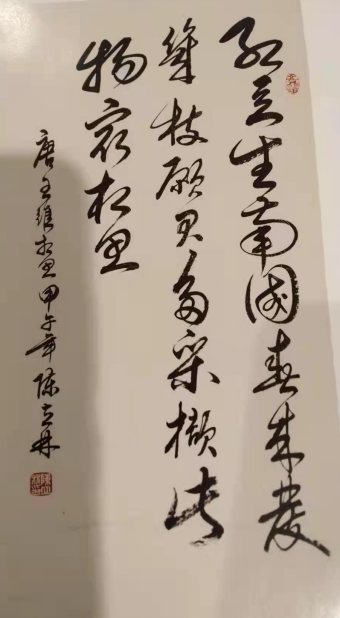 红豆生南國春来發
幾枝願君多采撷此
物最相思
唐王维相思甲午年陈立